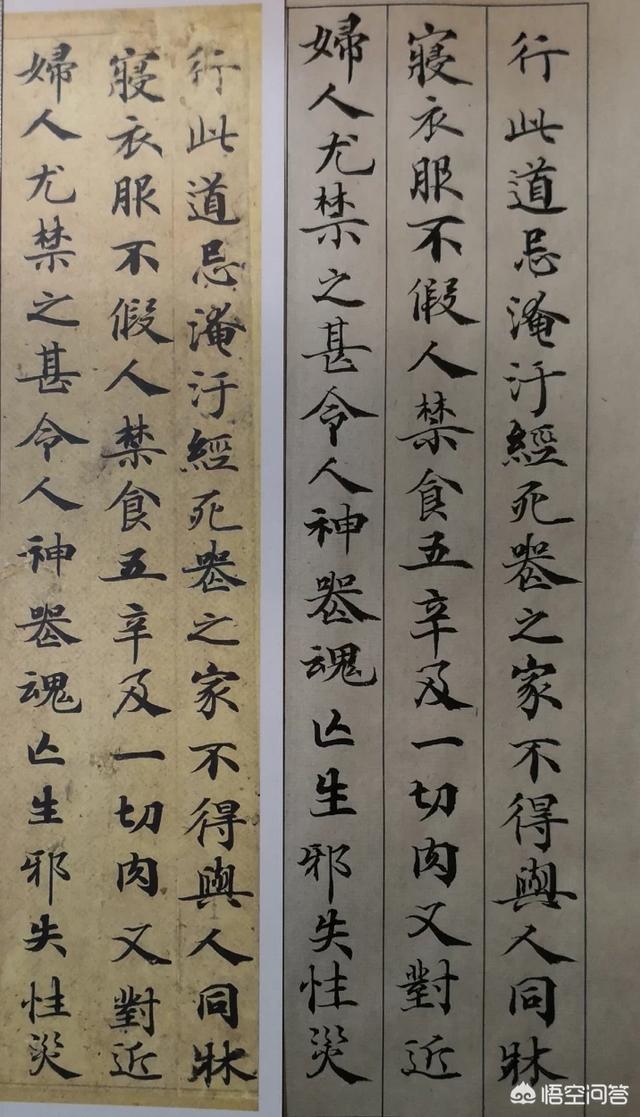 行此道忌淹汙經死喪之家不得與人同牀
寢衣服不假人禁食五辛及一切肉又對近
婦人尤禁之甚令人神喪魂亡生邪失性災
行此道忌淹汙經死喪之家不得與人同牀
寢衣服不假人禁食五辛及一切肉又對近
婦人尤禁之甚令人神喪魂亡生邪失性災
悟空问答